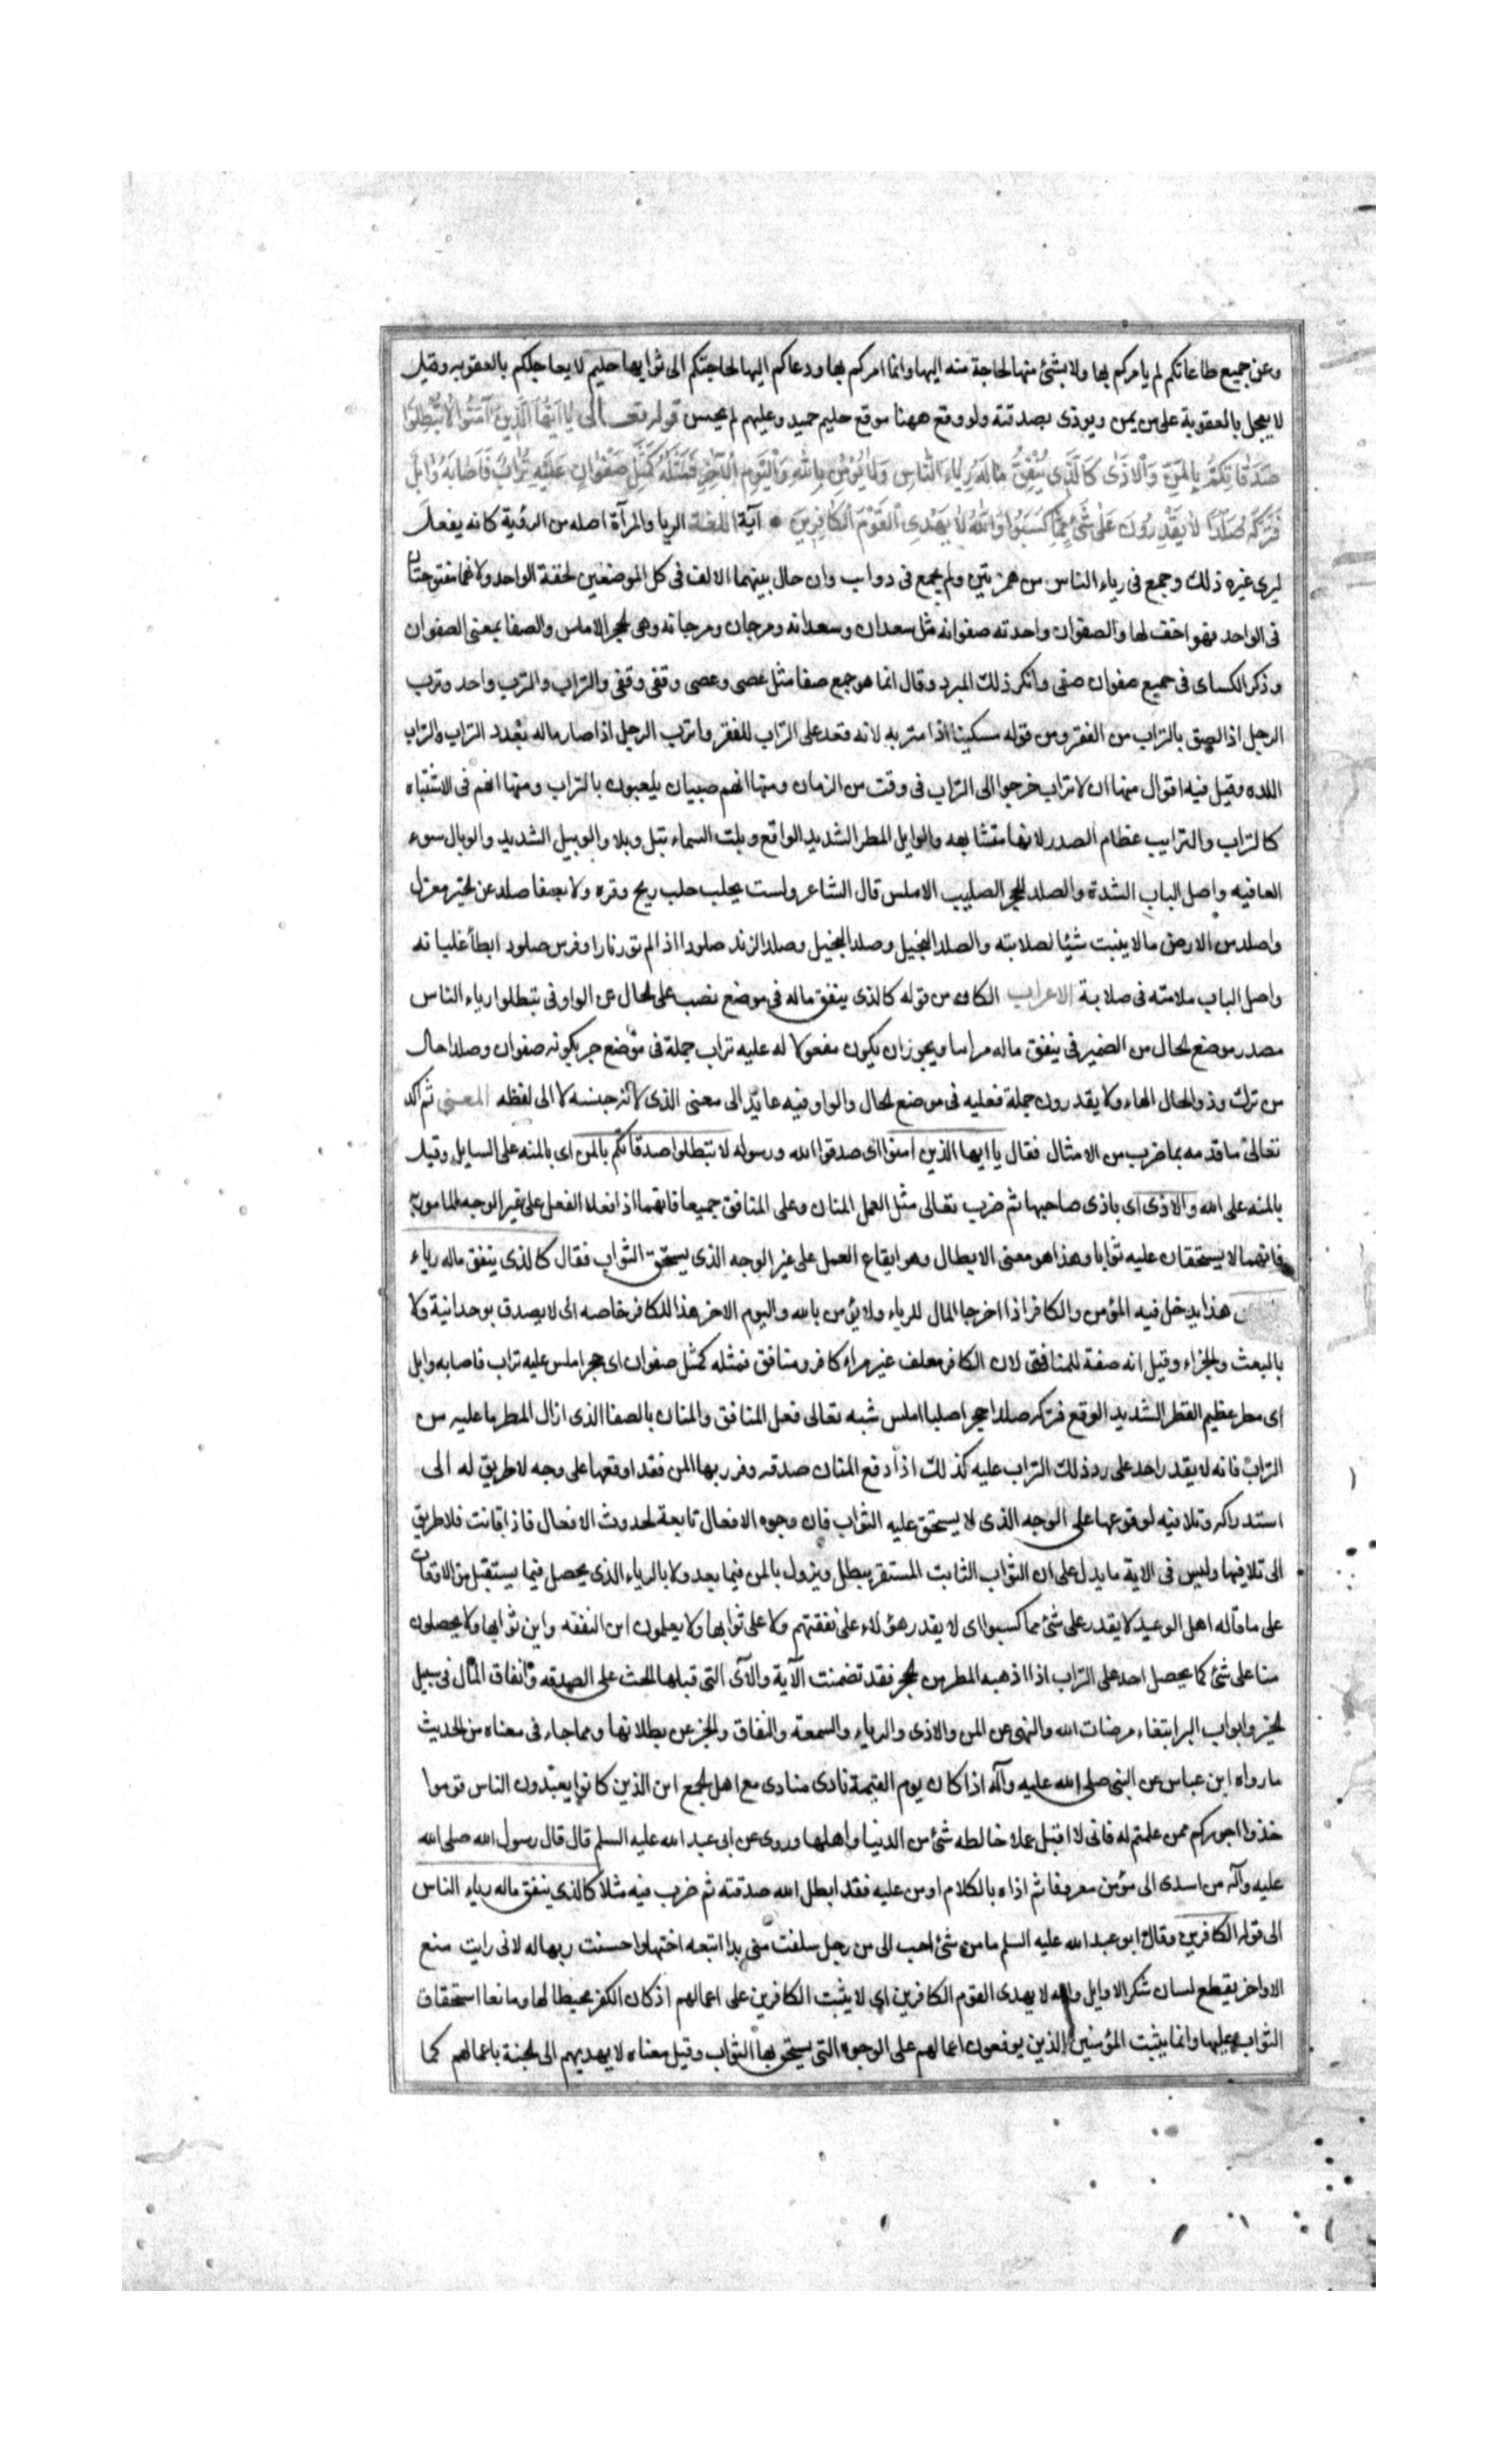 وعن جميع طاعاتكم لم يامركم بها ولا بشئ منها لحاجة منه اليها وانما امركم بها ودعاكم اليها لحاجتكم الى ثوابها حليم لا يعاجلكم بالعقوبه وقيل
لا يعجل بالعقوبة على من يمن ويوذى بصدقته ولو وقع ههنا موقع حليم حميد وعليهم لم يحسن قوله تعالى يا ايها الذين آمنوا لا تبطلوا
صَدَقاتِكُمْ بِالمَنِّ وَالْاَذٰى كَالَّذى يُنْفِقُ مالَهُ رِياءَ النّاسِ وَلا يُؤْمِنُ بِاللهِ وَالْيَوْمِ الْآخِرِ فَمَثَلُهُ كَمَثَلِ صَفْوانٍ عَلَيْهِ تُرابٌ فَاَصابَهُ وابِلٌ
فَتَرَكَهُ صَلْدًا لا يَقْدِرُونَ عَلى شَئٍ مِمّا كَسَبُوا وَاللهُ لا يَهْدِى الْقَوْمَ الْكافِرِينَ آية اللغة الريا والمرآة اصله من الرؤية كانه يفعل
ليرى غيره ذلك وجمع فى رياء الناس من همزتين ولم يجمع فى دواب وان حال بينهما الالف فى كل الموضعين لخفة الواحد ولانهما مفتوحتان
فى الواحد فهو اخف لها والصفوان واحدته صفوانه مثل سعدان وسعدانه ومرجان ومرجانه وهى الحجر الاملس والصفا بمعنى الصفوان
وذكر الكساى فى جميع صفوان صفى وانكر ذلك المبرد وقال انما هو جمع صفا مثل عصى وعصى وقفى وقفى والتراب والترب واحد وترب
الرجل اذا لصق بالتراب من الفقر ومن قوله مسكينا ذا متربه لانه قعد على التراب للفقر واترب الرجل اذا صار ماله بعدد التراب والتراب
اللده وقيل فيه اقوال منها ان الاتراب خرجوا الى التراب فى وقت من الزمان ومنها انهم صبيان يلعبون بالتراب ومنها انهم فى الاشتباه
كالتراب والترايب عظام الصدر لانها متشابهه والوابل المطر الشديد الواقع وبلت السماء تبل وبلا والوبيل الشديد والوبال سوء
العاقبه واصل الباب الشدة والصلد الحجر الصليب الاملس قال الشاعر ولست بجلب جلب ريح وقره ولا بصفا صلد عن الخير معزل
واصلد من الارض ما لا ينبت شيئا لصلابته والصلد البخيل وصلد البخيل وصلد الزند صلودا اذا لم تور نارا وفرس صلود ابطأ غليانه
واصل الباب ملامته فى صلابة الاعراب الكاف من قوله كالذى ينفق ماله فى موضع نصب على الحال من الواو فى تبطلوا رياء الناس
مصدر موضع الحال من الضمير فى ينفق ماله مرايبا ويجوز ان يكون مفعولا له عليه تراب جملة فى موضع جر بكونه صفوان وصلدا حال
من ترك وذو الحال الهاء ولا يقدرون جملة فعليه فى موضع الحال والواو فيه عايد الى معنى الذى لانه جنسه لا الى لفظه المعنى ثم اكد
تعالى ما قدمه بما ضرب من الامثال فقال يا ايها الذين امنوا اى صدقوا الله ورسوله لا تبطلوا صدقاتكم بالمن اى بالمنه على السايل وقيل
بالمنه على الله والاذى اى باذى صاحبها ثم ضرب تعالى مثل العمل المنان وعلى المنافق جميعا فانهما اذا فعلا الفعل على غير الوجه المامور به
فانهما لا يستحقان عليه ثوابا وهذا هو معنى الابطال وهو ايقاع العمل على غير الوجه الذى يستحق الثواب فقال كالذى ينفق ماله رياء
هذا يدخل فيه المؤمن والكافر اذا اخرجا المال للرياء ولا يؤمن بالله واليوم الاخر هذا للكافر خاصه اى لا يصدق بوحدانية ولا
بالبعث والجزاء وقيل انه صفة للمنافقى لان الكافر معلف غير مراء كافر ومنافق فمثله كمثل صفوان اى حجر املس عليه تراب فاصابه وابل
اى مطر عظيم القطر الشديد الوقع فتركه صلدا حجرا صلبا املس شبه تعالى فعل المنافق والمنان بالصفا الذى ازال المطر ما عليه من
التراب فانه لا يقدر احد على رد ذلك التراب عليه كذلك اذا دفع المنان صدقه وقرن بها المن فقد اوقعها على وجه لا طريق له الى
استدراكه وتلافيه لوقوعها على الوجه الذى لا يستحق عليه الثواب فان وجوه الافعال تابعة لحدوث الافعال فاذا فاتت فلا طريق
الى تلافيها وليس فى الاية ما يدل على ان الثواب الثابت المستقر يبطل ويزول بالمن فيما بعد ولا بالرياء الذى يحصل فيما يستقبل من الاوقات
على ما قاله اهل الوعيد لا يقدر على شئ مما كسبوا اى لا يقدر هؤلاء على نفقتهم ولا على ثوابها ولا يعلمون اين النفقه واين ثوابها ولا يحصلون
منا على شئ كما يحصل احد على التراب اذا اذهبه المطر من الحجر فقد تضمنت الآية والآى التى قبلها الحث على الصدقه وانفاق المال فى سبيل
الخير وابواب البر ابتغاء مرضات الله والنهى عن المن والاذى والرياء والسمعة والنفاق والخبر عن بطلانها ومما جاء فى معناه من الحديث
ما رواه ابن عباس عن النبى صلى الله عليه وآله اذا كان يوم القيمة نادى منادى مع اهل الجمع اين الذين كانوا يعبدون الناس قوموا
خذوا اجوركم ممن علمتم له فانى لا اقبل عملا خالطه شئ من الدنيا واهلها وروى عن ابى عبد الله عليه السلم قال قال رسول الله صلى الله
عليه وآله من اسدى الى مؤمن معروفا ثم اذاه بالكلام او من عليه فقد ابطل الله صدقته ثم ضرب فيه مثلا كالذى ينفق ماله رياء الناس
الى قوله الكافرين وقال ابو عبد الله عليه السلم ما من شئ احب الى من رجل سلفت منى يدا اتبعه اختها واحسنت ربها له لانى رايت منع
الاواخر يقطع لسان شكر الاوايل والله لا يهدى القوم الكافرين اى لا يثبت الكافرين على اعمالهم اذ كان الكفر محيطا لها ومانعا استحقاق
الثواب عليها وانما يثبت المؤمنين الذين يوقعون اعمالهم على الوجوه التى يستحق بها الثواب وقيل معناه لا يهديهم الى الجنة باعمالهم كما